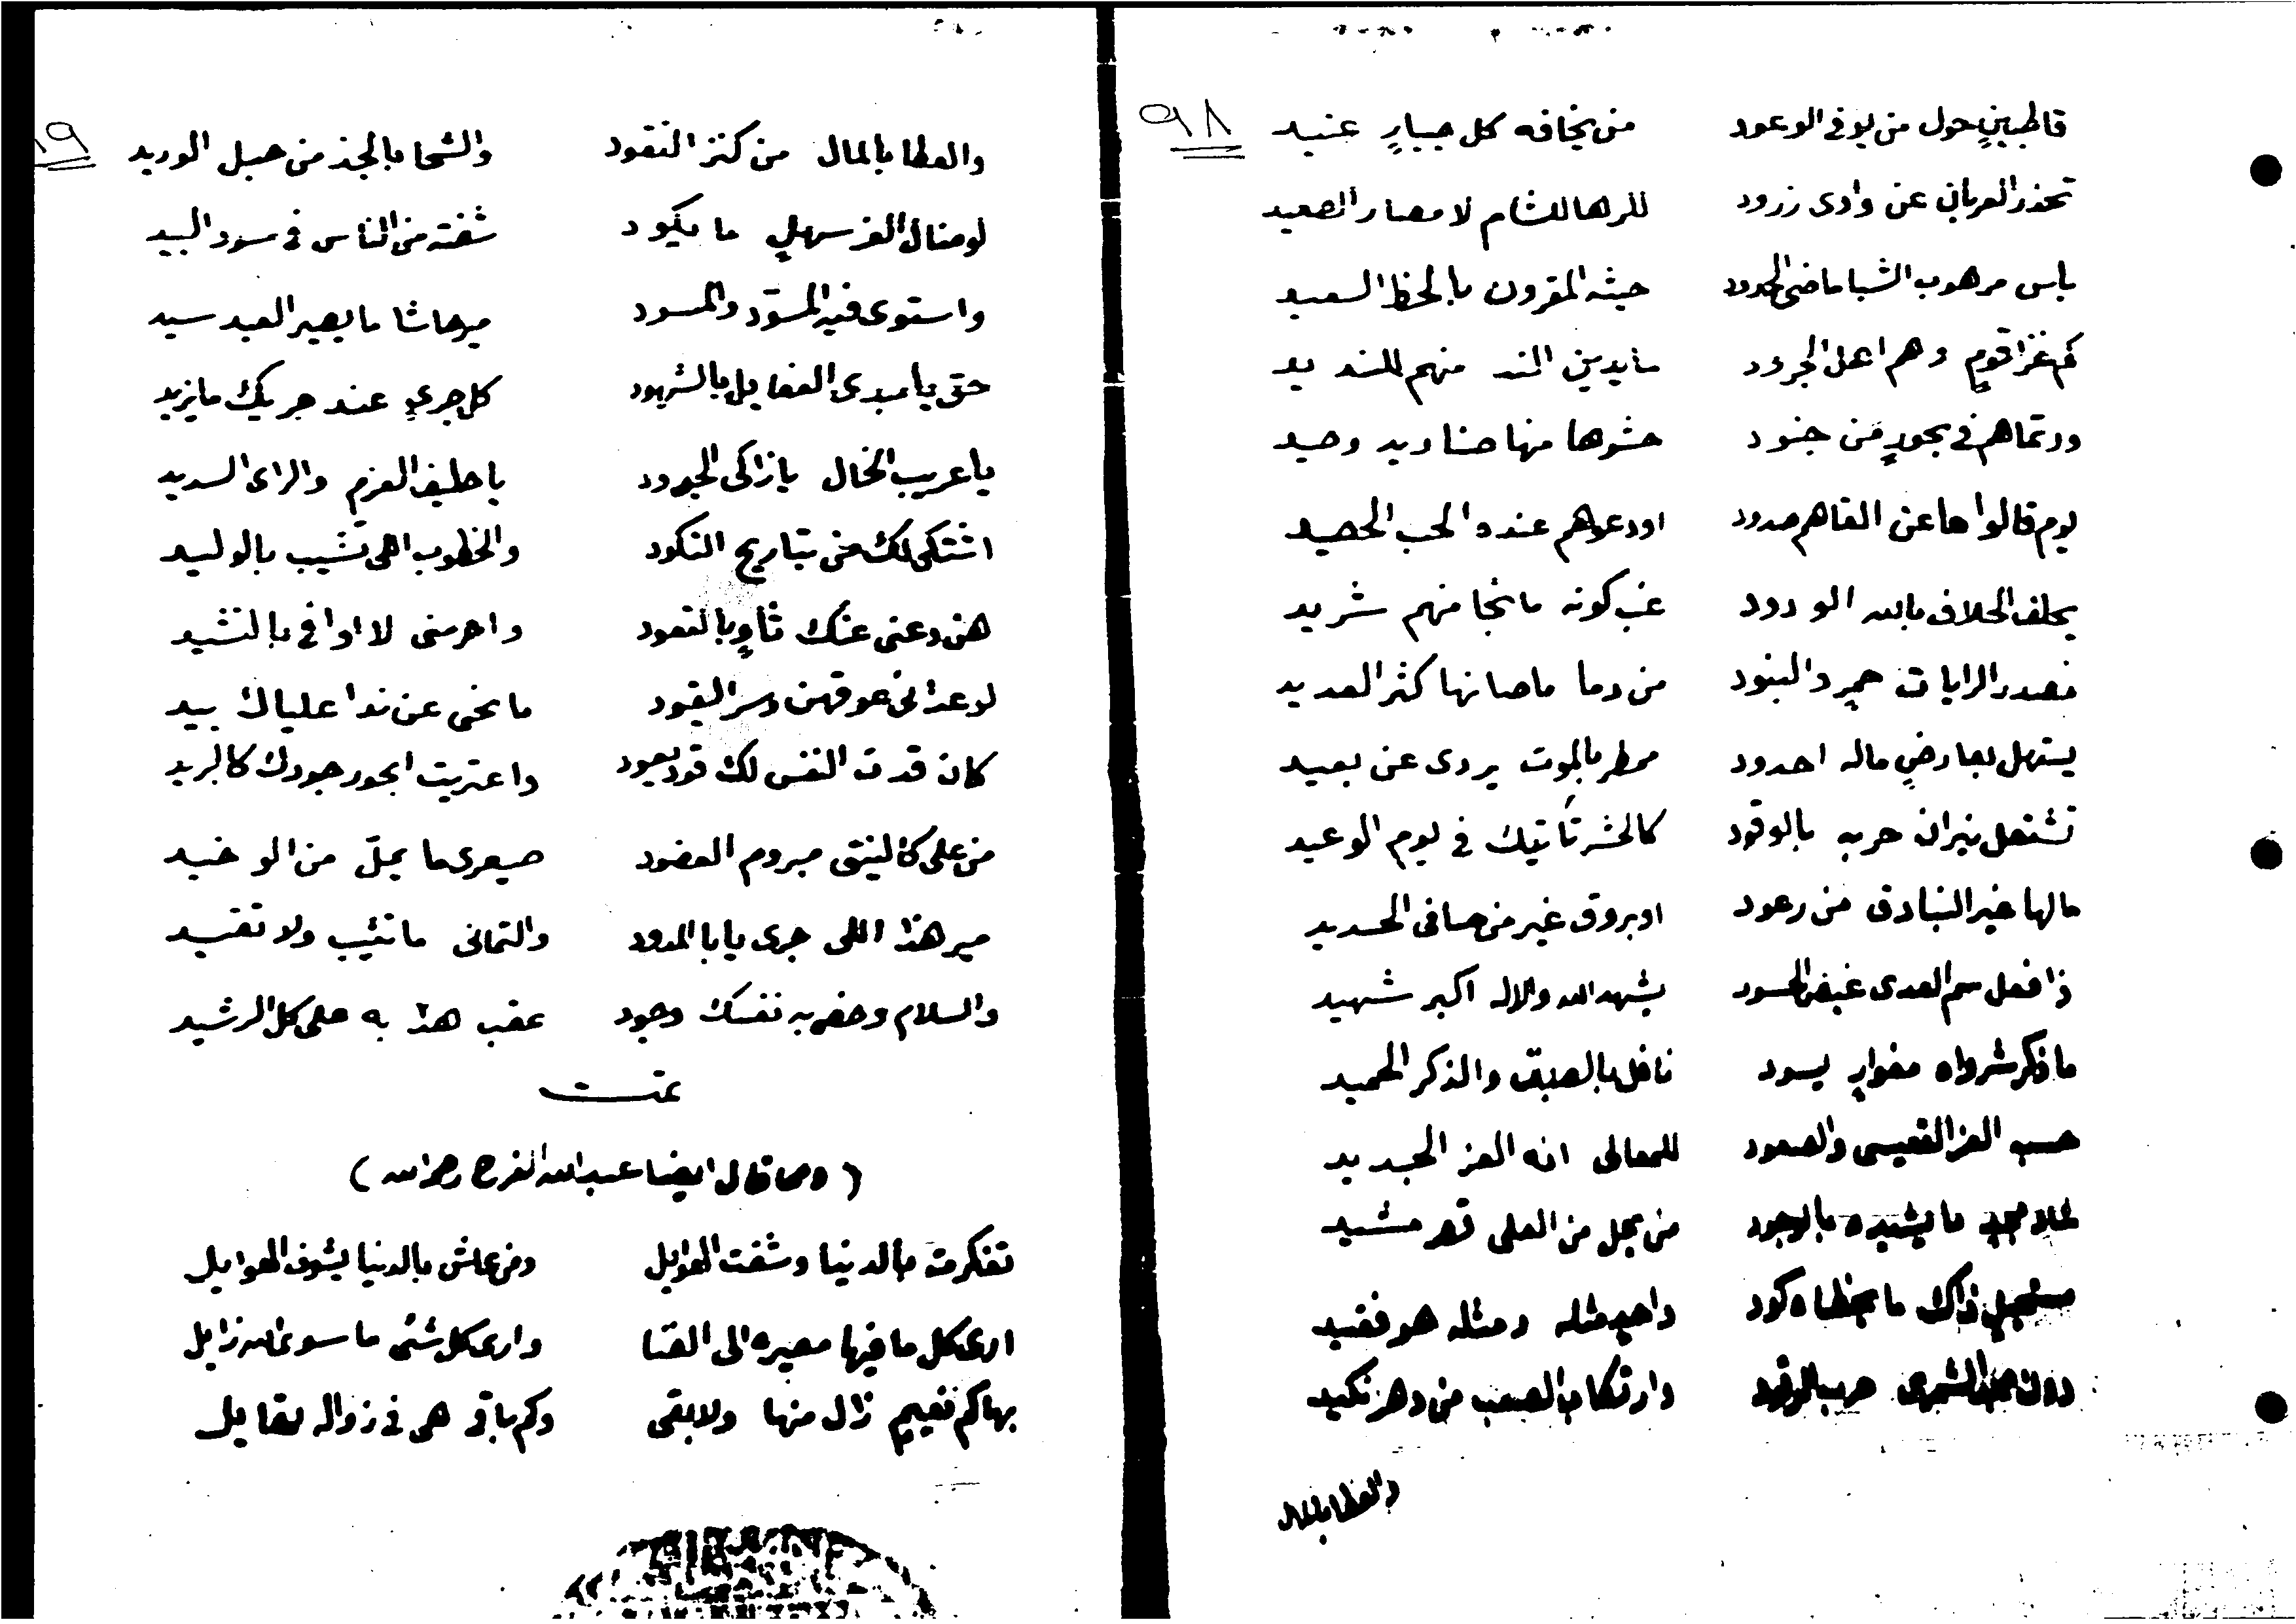 ٩٨
قاطبينٍ حول من يوفي الوعود من يخافه كل جبارٍ عنيد
تحذر العربان عن وادي زرود للرها للشام لامصار الصعيد
باس مرهوب الشبا ماضي الحدود حيثه المقرون بالحظ السعيد
كم غزا قومٍ وهم اهل الجرود ما يدين الند منهم للنديد
ورتماهم في بحورٍ من جنود حشوها منها صناديد وصيد
يوم قالوا ها عن القاهم صدود اودعوهم عنده الحب الحصيد
يحلف الحلاف بالله الودود غب كونه ما نجا منهم شريد
فصدر الرايات حمرٍ والبنود من دما ماصانها كثر العديد
يستهل بعارضٍ ماله احدود ممطر بالموت يردي عن بعيد
تشتعل نيران حربه بالوقود كالحشر تأتيك في يوم الوعيد
مالها غير البنادق من رعود او بروق غير من صافي الحديد
ذا فعل سم العدى غيض الحسود يشهد الله والاله اكبر شهيد
ما ذكر شرواه مغوارٍ يسود نافل بالصيت والذكر الحميد
حسب العز القعيسي والصعود للمعالي انه العز الجديد
ما يشيده بالوجود من يجل من العلى قصر مشيد
مستحيلٍ ذاك ما يحظاه كود واحدٍ مثله ومثله هو فقيد
دون وارتكاب الصعب من دهر نكيد
والعطا بالمال
٩٩
والعطا بالمال من كنز النقود والشحا بالجذ من حبل الوريد
لو منال العز سهلٍ ما يكود شفته من الناس في سود البيد
واستوى فيه المسوّد والمسود مير حاشا ما يصير العبد سيد
حق يا مبدي الفضايل بالشهود كل جري عند جريك ما يزيد
يا عريب الخال يا زاكي الجدود يا حليف العزم والراي السديد
اشتكي لك من تباريح النكود والخطوب اللي تشيب بالوليد
هن دعني عنك ثاوٍ بالقعود واحرمني لا اوافي بالنشيد
لو عداني عوقهن وسر القيود ما نحى عن ندا علياك بيد
كان قدت النفس لك قود يعود واعتريت ابحور جودك كالبريد
من على كالينتي مبروم العضود صيعري ما يملّ من الوخيد
مير هذا اللي جرى يا با المدود والتماني ما تثيب ولا تفيد
والسلام وخص به نفسك وجود عقب هذا به على كل الرشيد
تمت
( ومما قال ايضا عبدالله الفرج رحمه الله )
تفكرت بالدنيا وشفت الهوايل ومن عاش بالدنيا يشوف الهوايل
ارى كل ما فيها مصيره الى الفنا وارى كل شئ ما سوى الله زايل
بها كم نعيمٍ زال منها ولا بقى وكم باقي هي في زواله تقايل